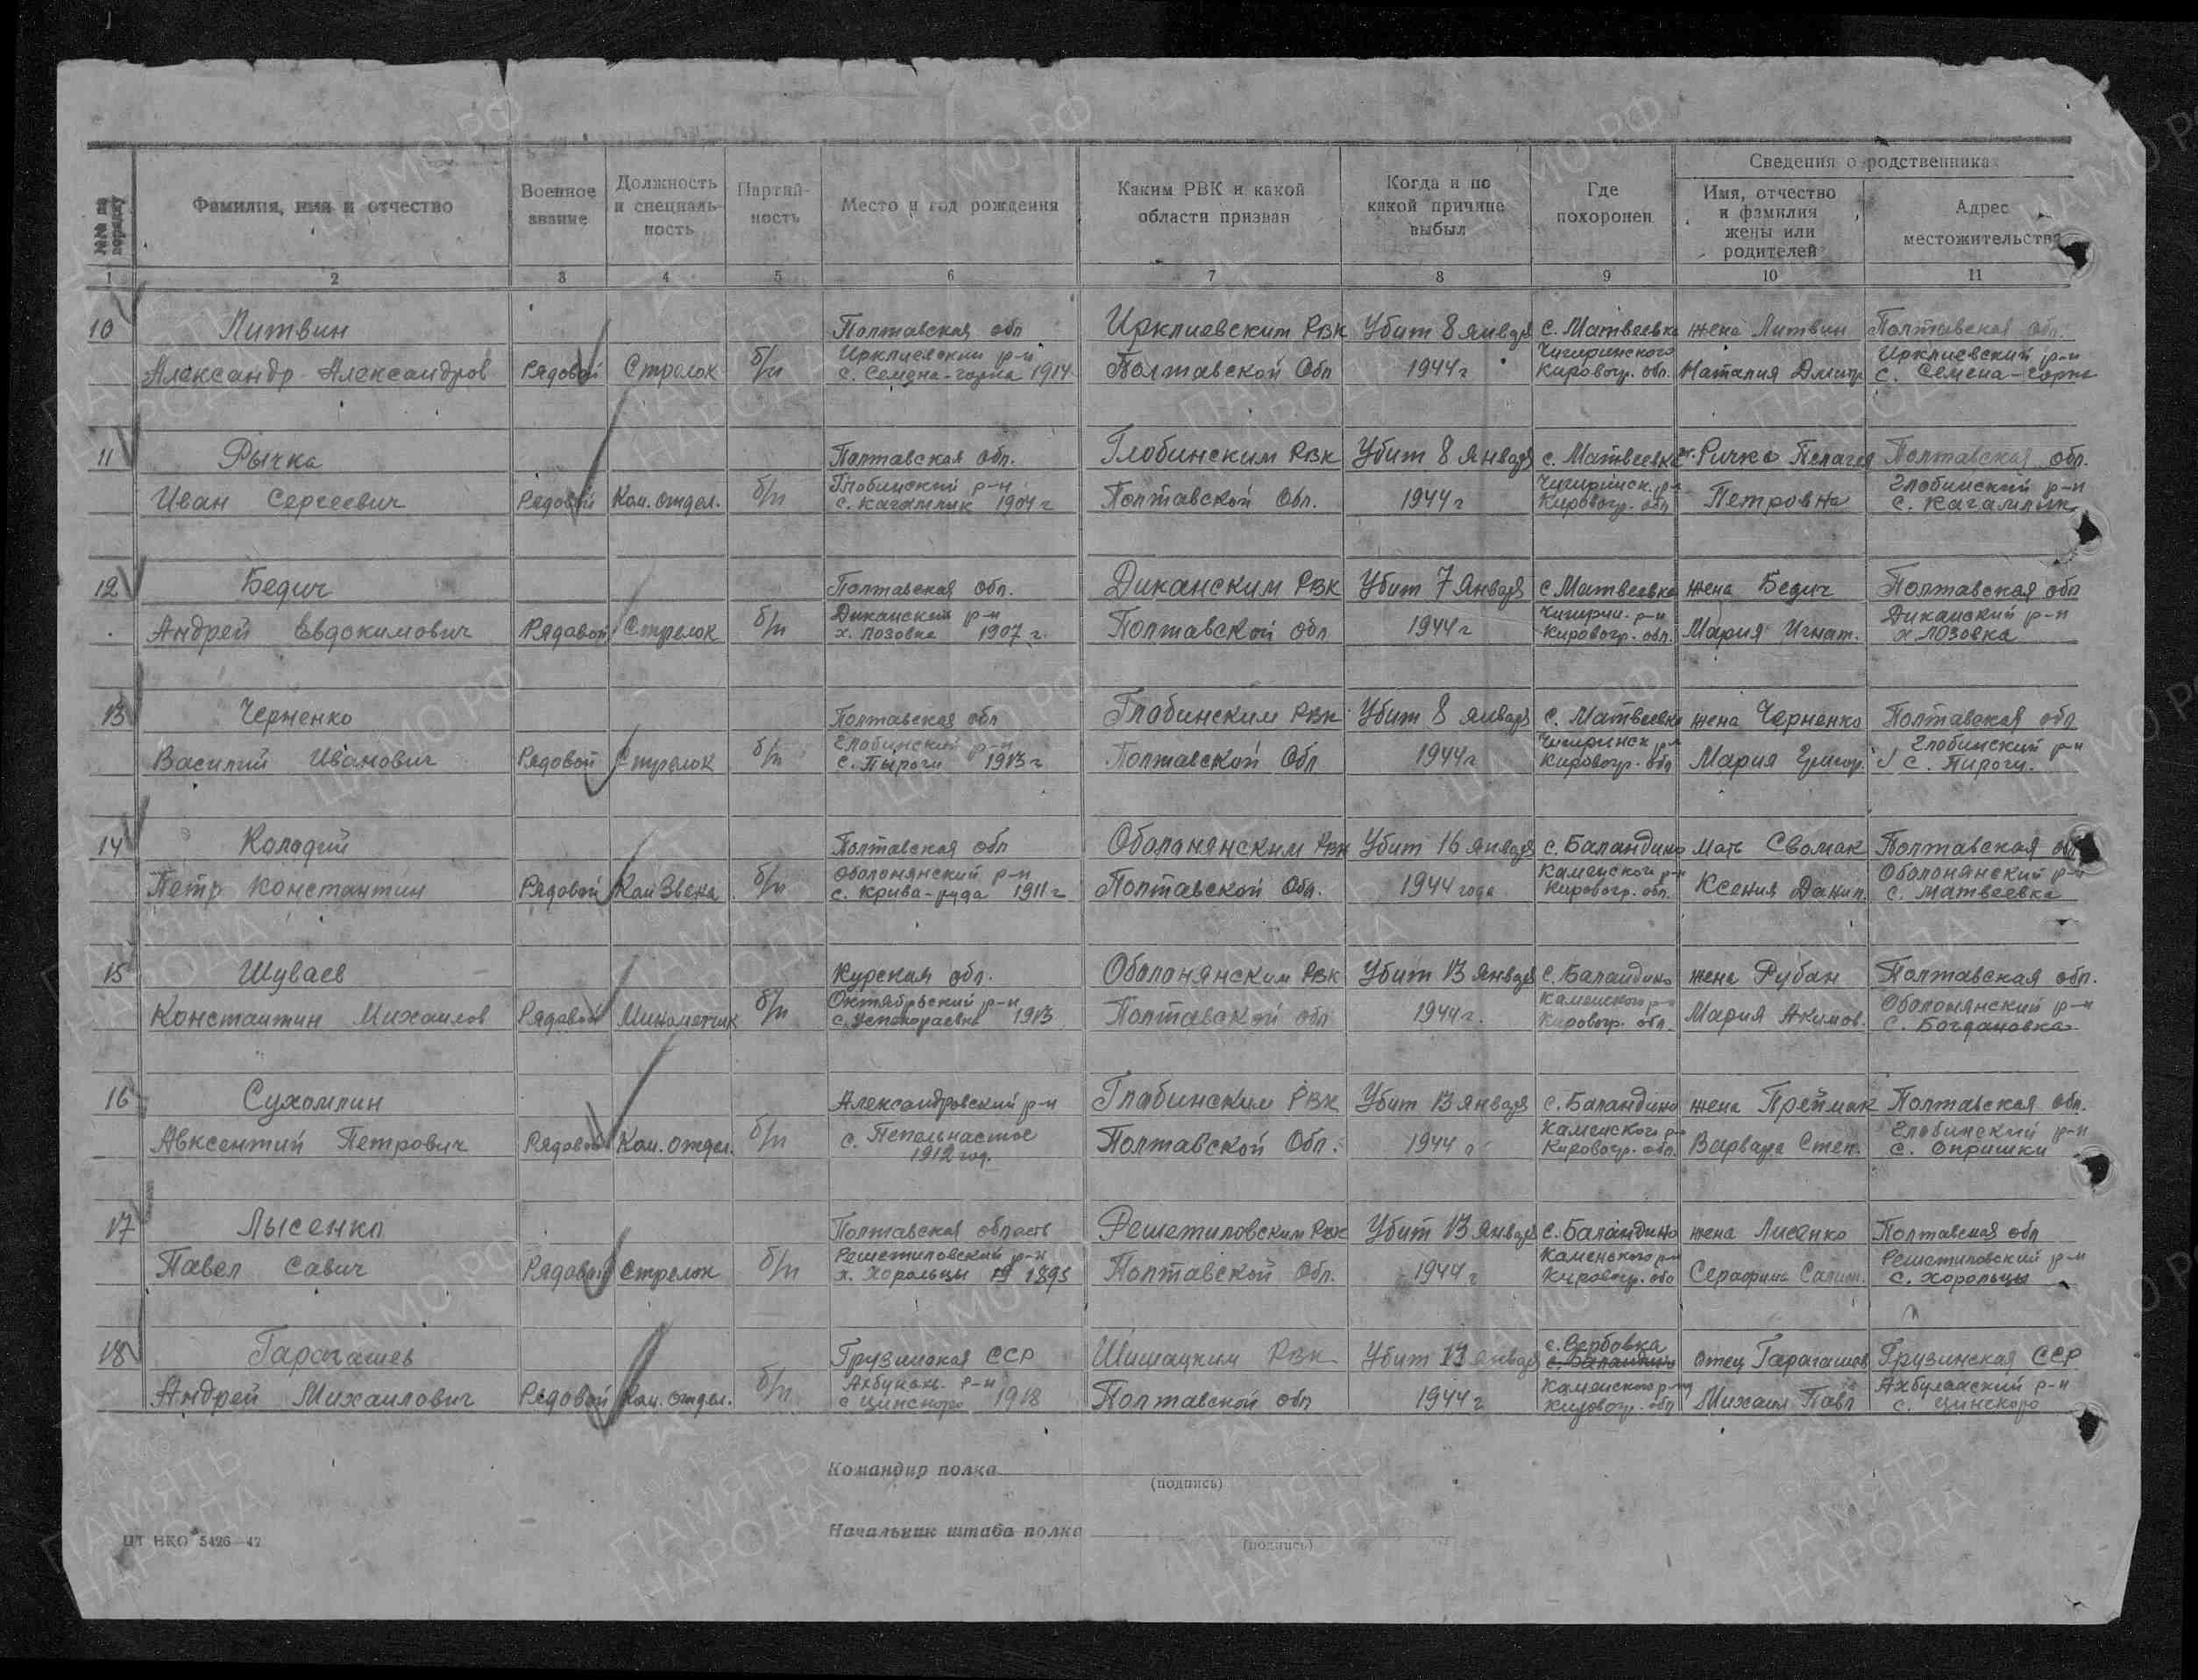 №№ по порядку
Фамилия, имя и отчество
Военное звание
Должность и специаль-ность
Партий-ность
Место и год рождения
Каким РВК и какой области призван
Когда и по какой причине выбыл
Где похоронен
Сведения о родственниках
Имя, отчество и фамилия жены или родителей
Адрес местожительства
1 2 3 4 5 6 7 8 9 10 11
10 Литвин Полтавская обл Ирклиевским РВК Убит 8 января с. Матвеевка жена Литвин Полтавская обл.
Александр Александров Рядовой Стрелок б/п Ирклиевский р-н с. Семена-горка 1914 Полтавской Обл 1944 г Чигиринского Кировогр. обл. Наталия Дмитр Ирклиевский р-н с. Семена-горка
11 Рычка Полтавская обл. Глобинским РВК Убит 8 января с. Матвеевка ж. Ричка Пелагея Полтавская обл.
Иван Сергеевич Рядовой Ком. отдел. б/п Глобинский р-н с. Кагамлик 1904 г Полтавской Обл. 1944 г Чигиринск. р-н Кировогр. обл Петровна Глобинский р-н с. Кагамлик
12 Бедич Полтавская Обл. Диканским РВК Убит 7 Января с Матвеевка жена Бедич Полтавская обл
Андрей Евдокимович Рядовой Стрелок б/п Диканский р-н х. Лозовка 1907 г. Полтавской обл 1944 г Чигирин. р-н Кировогр. обл. Мария Игнат. Диканский р-н х Лозовка
13 Черненко Полтавская обл Глобинским РВК Убит 8 января с. Матвеевка жена Черненко Полтавская обл
Василий Иванович Рядовой Стрелок б/п Глобинский р-н с. Пыроги 1913 г Полтавской Обл 1944 г Чигиринск р-н Кировогр. обл Мария Григор. Глобинский р-н с. Пироги.
14 Колодий Полтавская обл Оболонянским РВК Убит 16 января с. Баландино мать Сволок Полтавская обл
Петр Константин Рядовой Ком Звена б/п Оболонянский р-н с. Крива-руда 1911 г Полтавской Обл. 1944 года Каменского р-н Кировогр. обл. Ксения Данил. Оболонянский р-н с. Матвеевка
15 Шуваев Курская обл. Оболонянским РВК Убит 13 января с. Баландино жена Рубан Полтавская обл.
Константин Михайлов Рядовой Минометчик б/п Октябрьский р-н 1913 Полтавской обл 1944 г. Каменского р-н Кировогр. обл. Мария Акимов. Оболонянский р-н с. Богдановка
16 Сухомлин Александровский р-н Глобинским РВК Убит 13 января с. Баландино жена Преймак Полтавская обл.
Авксентий Петрович Рядовой Ком. отдел. б/п с. Пепельнастое 1912 год. Полтавской Обл. 1944 г Каменского р-н Кировогр. обл. Варвара Степ. Глобинский р-н с. Опришки
17 Лысенко Полтавская область Решетиловским РВК Убит 13 января с. Баландино жена Лисенко Полтавская обл
Павел Савич Рядовой Стрелок б/п Решетиловский р-н х. Хорольцы 1895 Полтавской Обл. 1944 г Каменского р-н Кировогр. обл Серафима Решетиловский р-н с. Хорольцы
18 Гарагашев Грузинская ССР Шишацким РВК Убит 13 января с. Вербовка с. Баландино отец Гарагашов Грузинская ССР
Андрей Михаилович Рядовой Ком. отдел. б/п р-н с Цинскоро 1918 Полтавской обл 1944 г Каменского р-на Кировогр. обл Михаил Павл р-н с. Цинскоро
Командир полка
(подпись)
Начальник штаба полка
(подпись)
ЦТ НКО 5426—42
ЦА МО РФ
ПАМЯТЬ НАРОДА